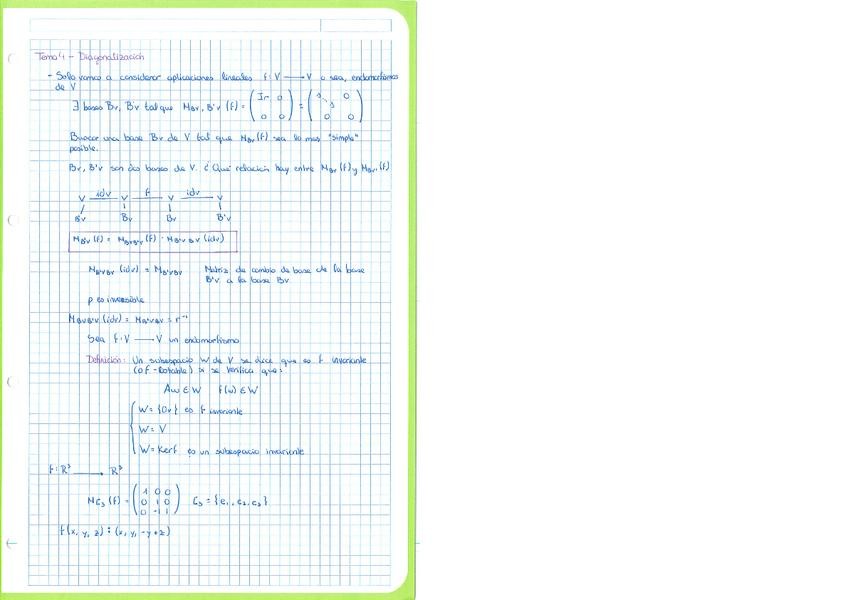 Tema 4 - Diagonalización
- Solo vamos a considerar aplicaciones lineales f: V → V o sea, endomorfismos
de V
∃ bases Bv, B'v tal que M_Bv, B'v (f) = (Ir 0 / 0 0) = (1 ⋱ 1 0 / 0 0)
Buscar una base Bv de V tal que M_Bv (f) sea lo mas "simple"
posible.
Bv, B'v son dos bases de V. ¿Qué relación hay entre M_Bv (f) y M_B'v (f)
idv f idv
V → V → V → V
B'v Bv Bv B'v
M_B'v (f) = M_BvB'v (f) · M_B'vBv (idv)
M_B'vBv (idv) = M_B'vBv Matriz de cambio de base de la base
B'v a la base Bv
p es inversible
M_BvB'v (idv) = M_B'vBv = r⁻¹
Sea f: V → V un endomorfismo
Definición: Un subespacio W de V se dice que es f invariante
(o f-estable) si se verifica que:
∀w ∈ W f(w) ∈ W
W = {0v} es f invariante
W = V
W = Kerf es un subespacio invariante
f: R³ → R³
M_C₃ (f) = (1 0 0 / 0 1 0 / 0 -1 1) C₃ = {e₁, e₂, e₃}
f(x, y, z) = (x, y, -y+z)